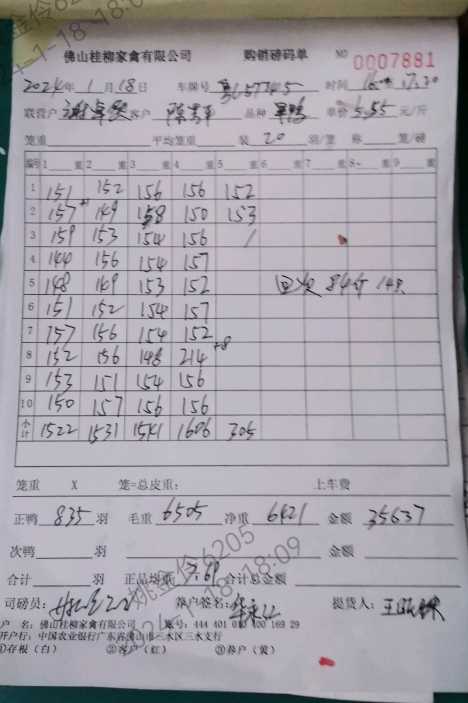 佛山桂柳家禽有限公司 购销磅码单 NO 0007881
2024年1月18日 车牌号 时间
联营户 客户 品种 单价 5.55 元/斤
笼重 平均笼重 装 20 羽/笼 称 笼/磅
编号 1 重 2 重 3 重 4 重 5 重 6 重 7 重 8 重 9 重
1 151 152 156 156 152
2 157 149 158 150 153
3 159 153 154 156 /
4 144 156 154 157
5 148 149 153 152 84斤
6 151 152 154 157
7 157 156 154 152
8 152 156 148 214 +8
9 153 151 154 156
10 150 157 156 156
小计 1522 1531 1541 1606 305
笼重 X 笼=总皮重: 上车费
正鸭 835 羽 毛重 6505 净重 6421 金额 35637
次鸭 羽 金额
合计 羽 正品均重 7.69 合计总金额
司磅员: 养户签名: 提货人:
户 名: 佛山桂柳家禽有限公司 账号: 444 401 010 400 169 29
开户行: 中国农业银行广东省佛山市三水区三水支行
①存根(白) ②客户(红) ③养户(黄)
姚金伶6205
24-1-18-18:09